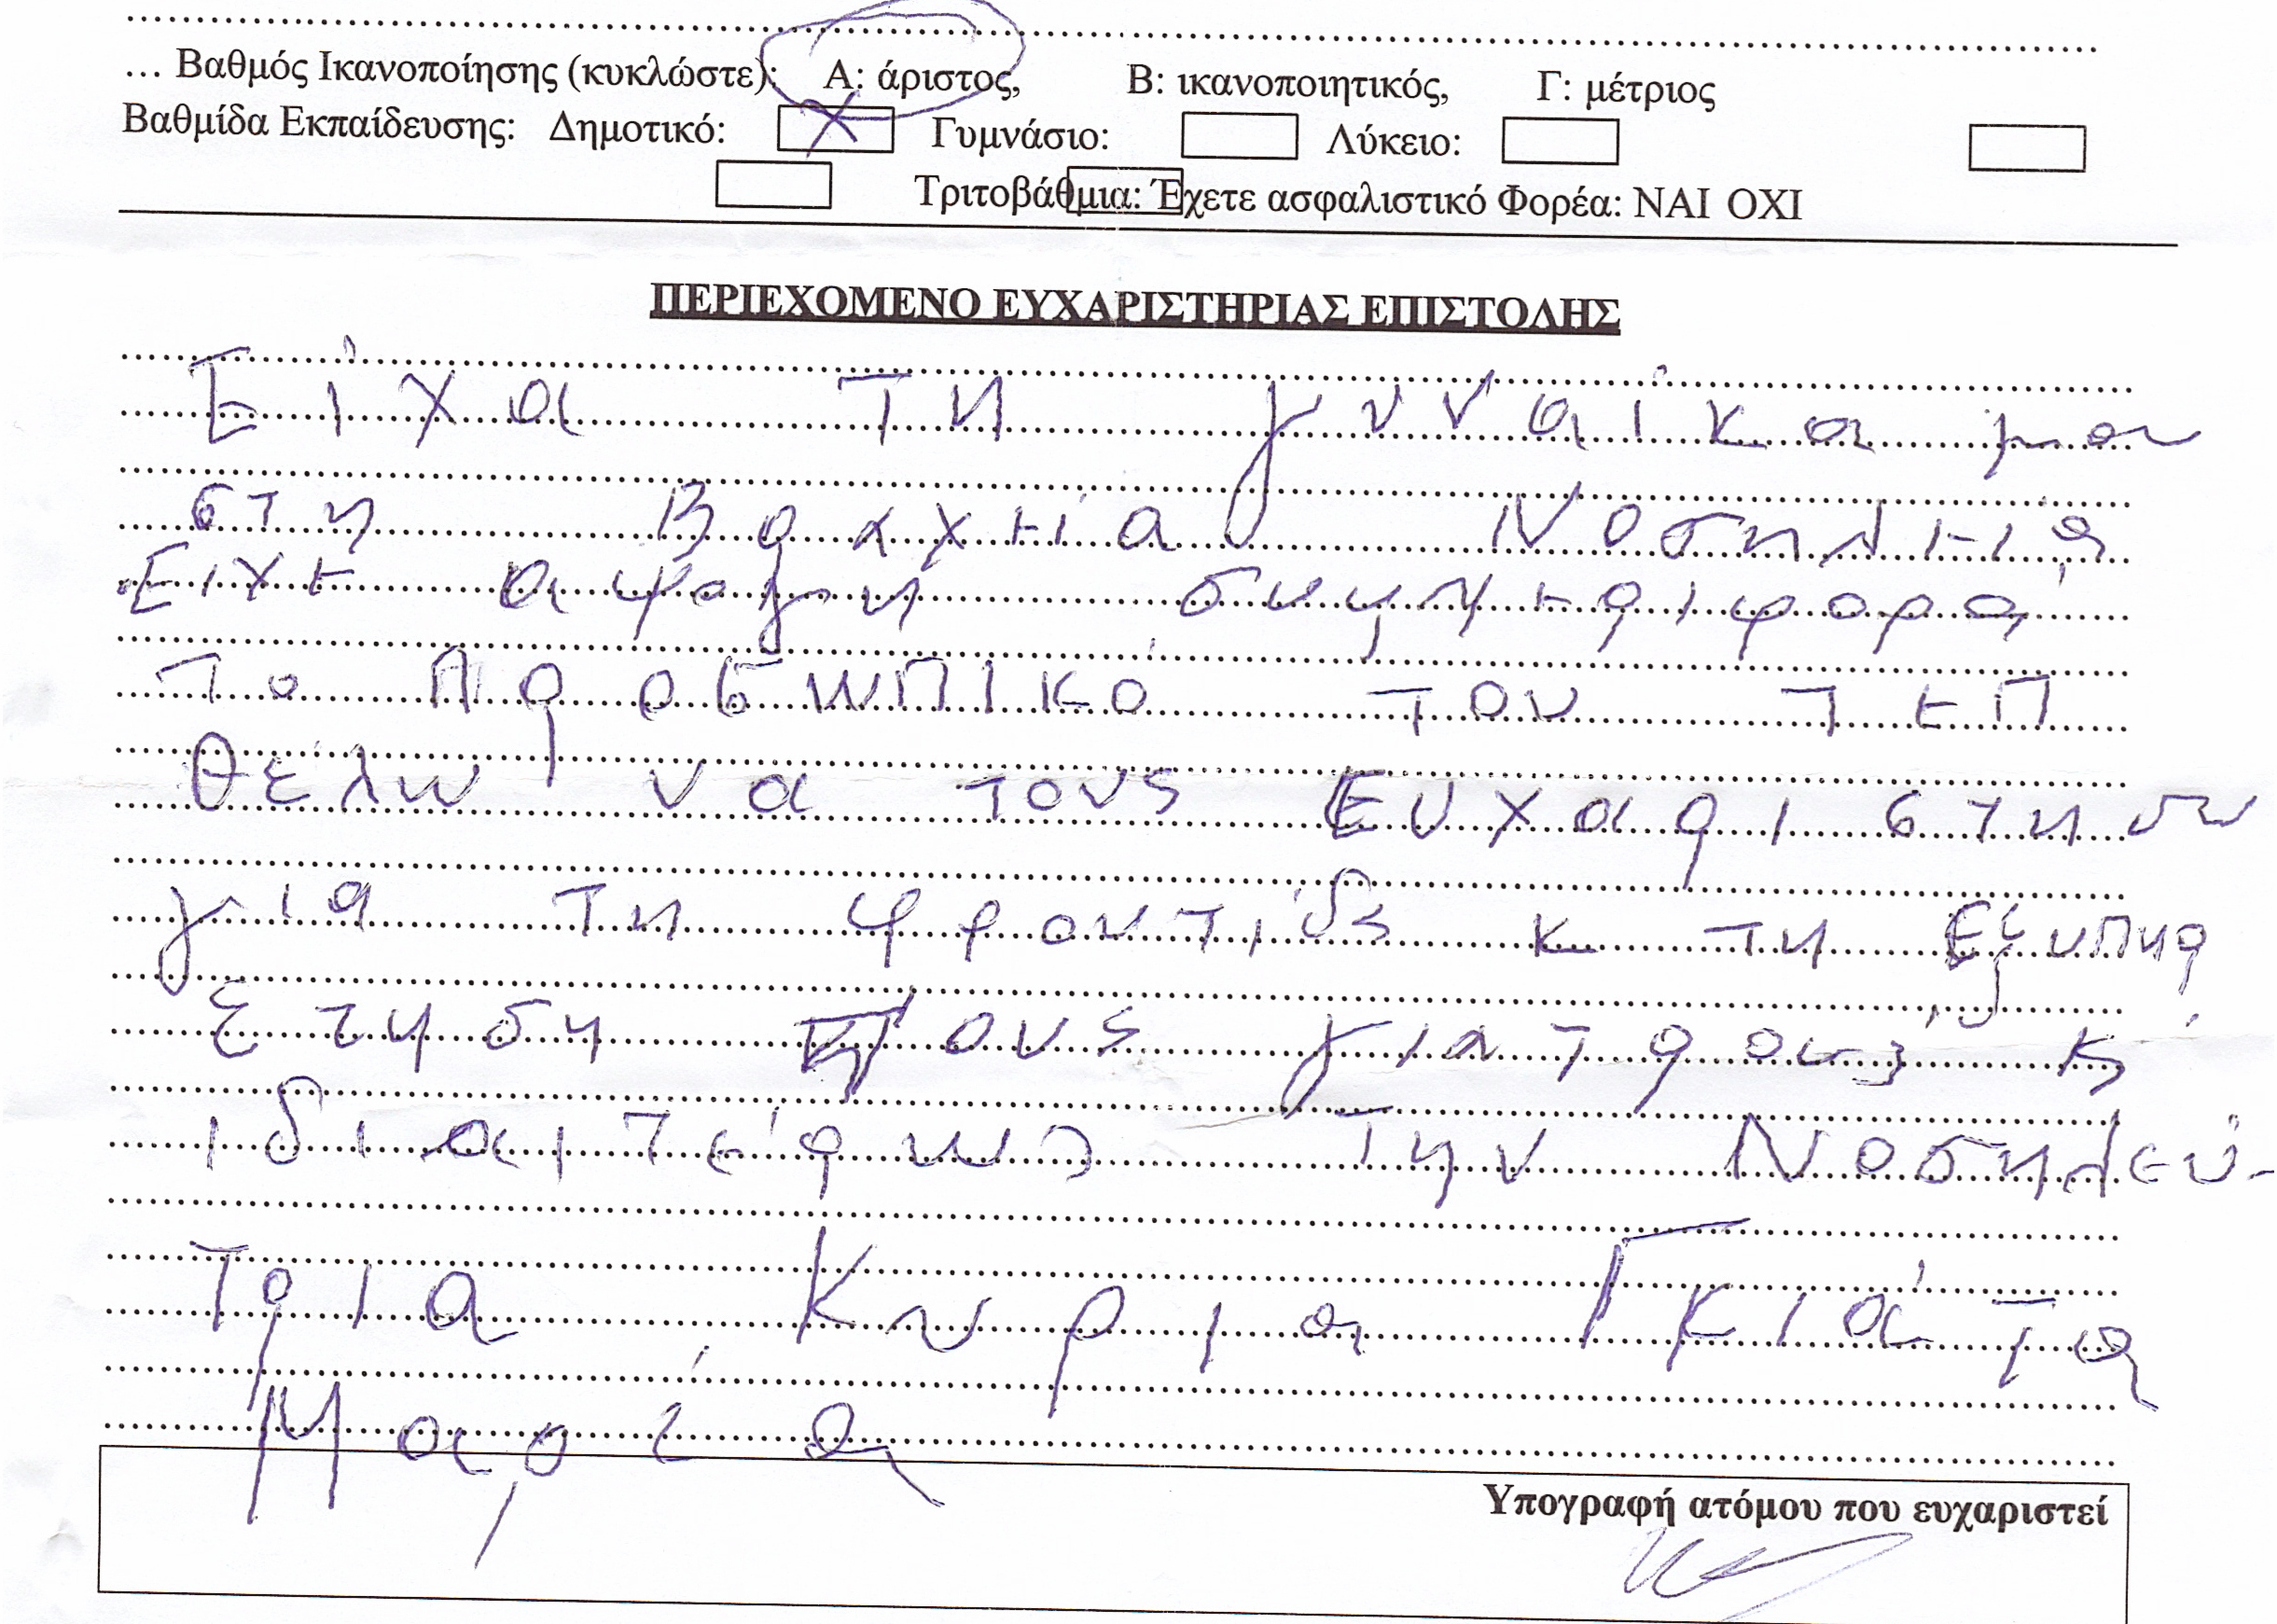 … Βαθμός Ικανοποίησης (κυκλώστε): Α: άριστος, Β: ικανοποιητικός, Γ: μέτριος
Βαθμίδα Εκπαίδευσης: Δημοτικό: X Γυμνάσιο: Λύκειο:
Τριτοβάθμια: Έχετε ασφαλιστικό Φορέα: ΝΑΙ ΟΧΙ
ΠΕΡΙΕΧΟΜΕΝΟ ΕΥΧΑΡΙΣΤΗΡΙΑΣ ΕΠΙΣΤΟΛΗΣ
Είχα τη γυναίκα μου
στη Βραχεία Νοσηλεία
Είχε αψογη συμπεριφορά
Το Προσωπικό του ΤΕΠ
Θέλω να τους Ευχαριστησω
για τη φροντίδα κ τη Εξυπηρ
ετηση τους γιατρους κ
ιδιαιτέρως Την Νοσηλεύ-
τρια Κυρια Γκιάτα
Μαρία
Υπογραφή ατόμου που ευχαριστεί